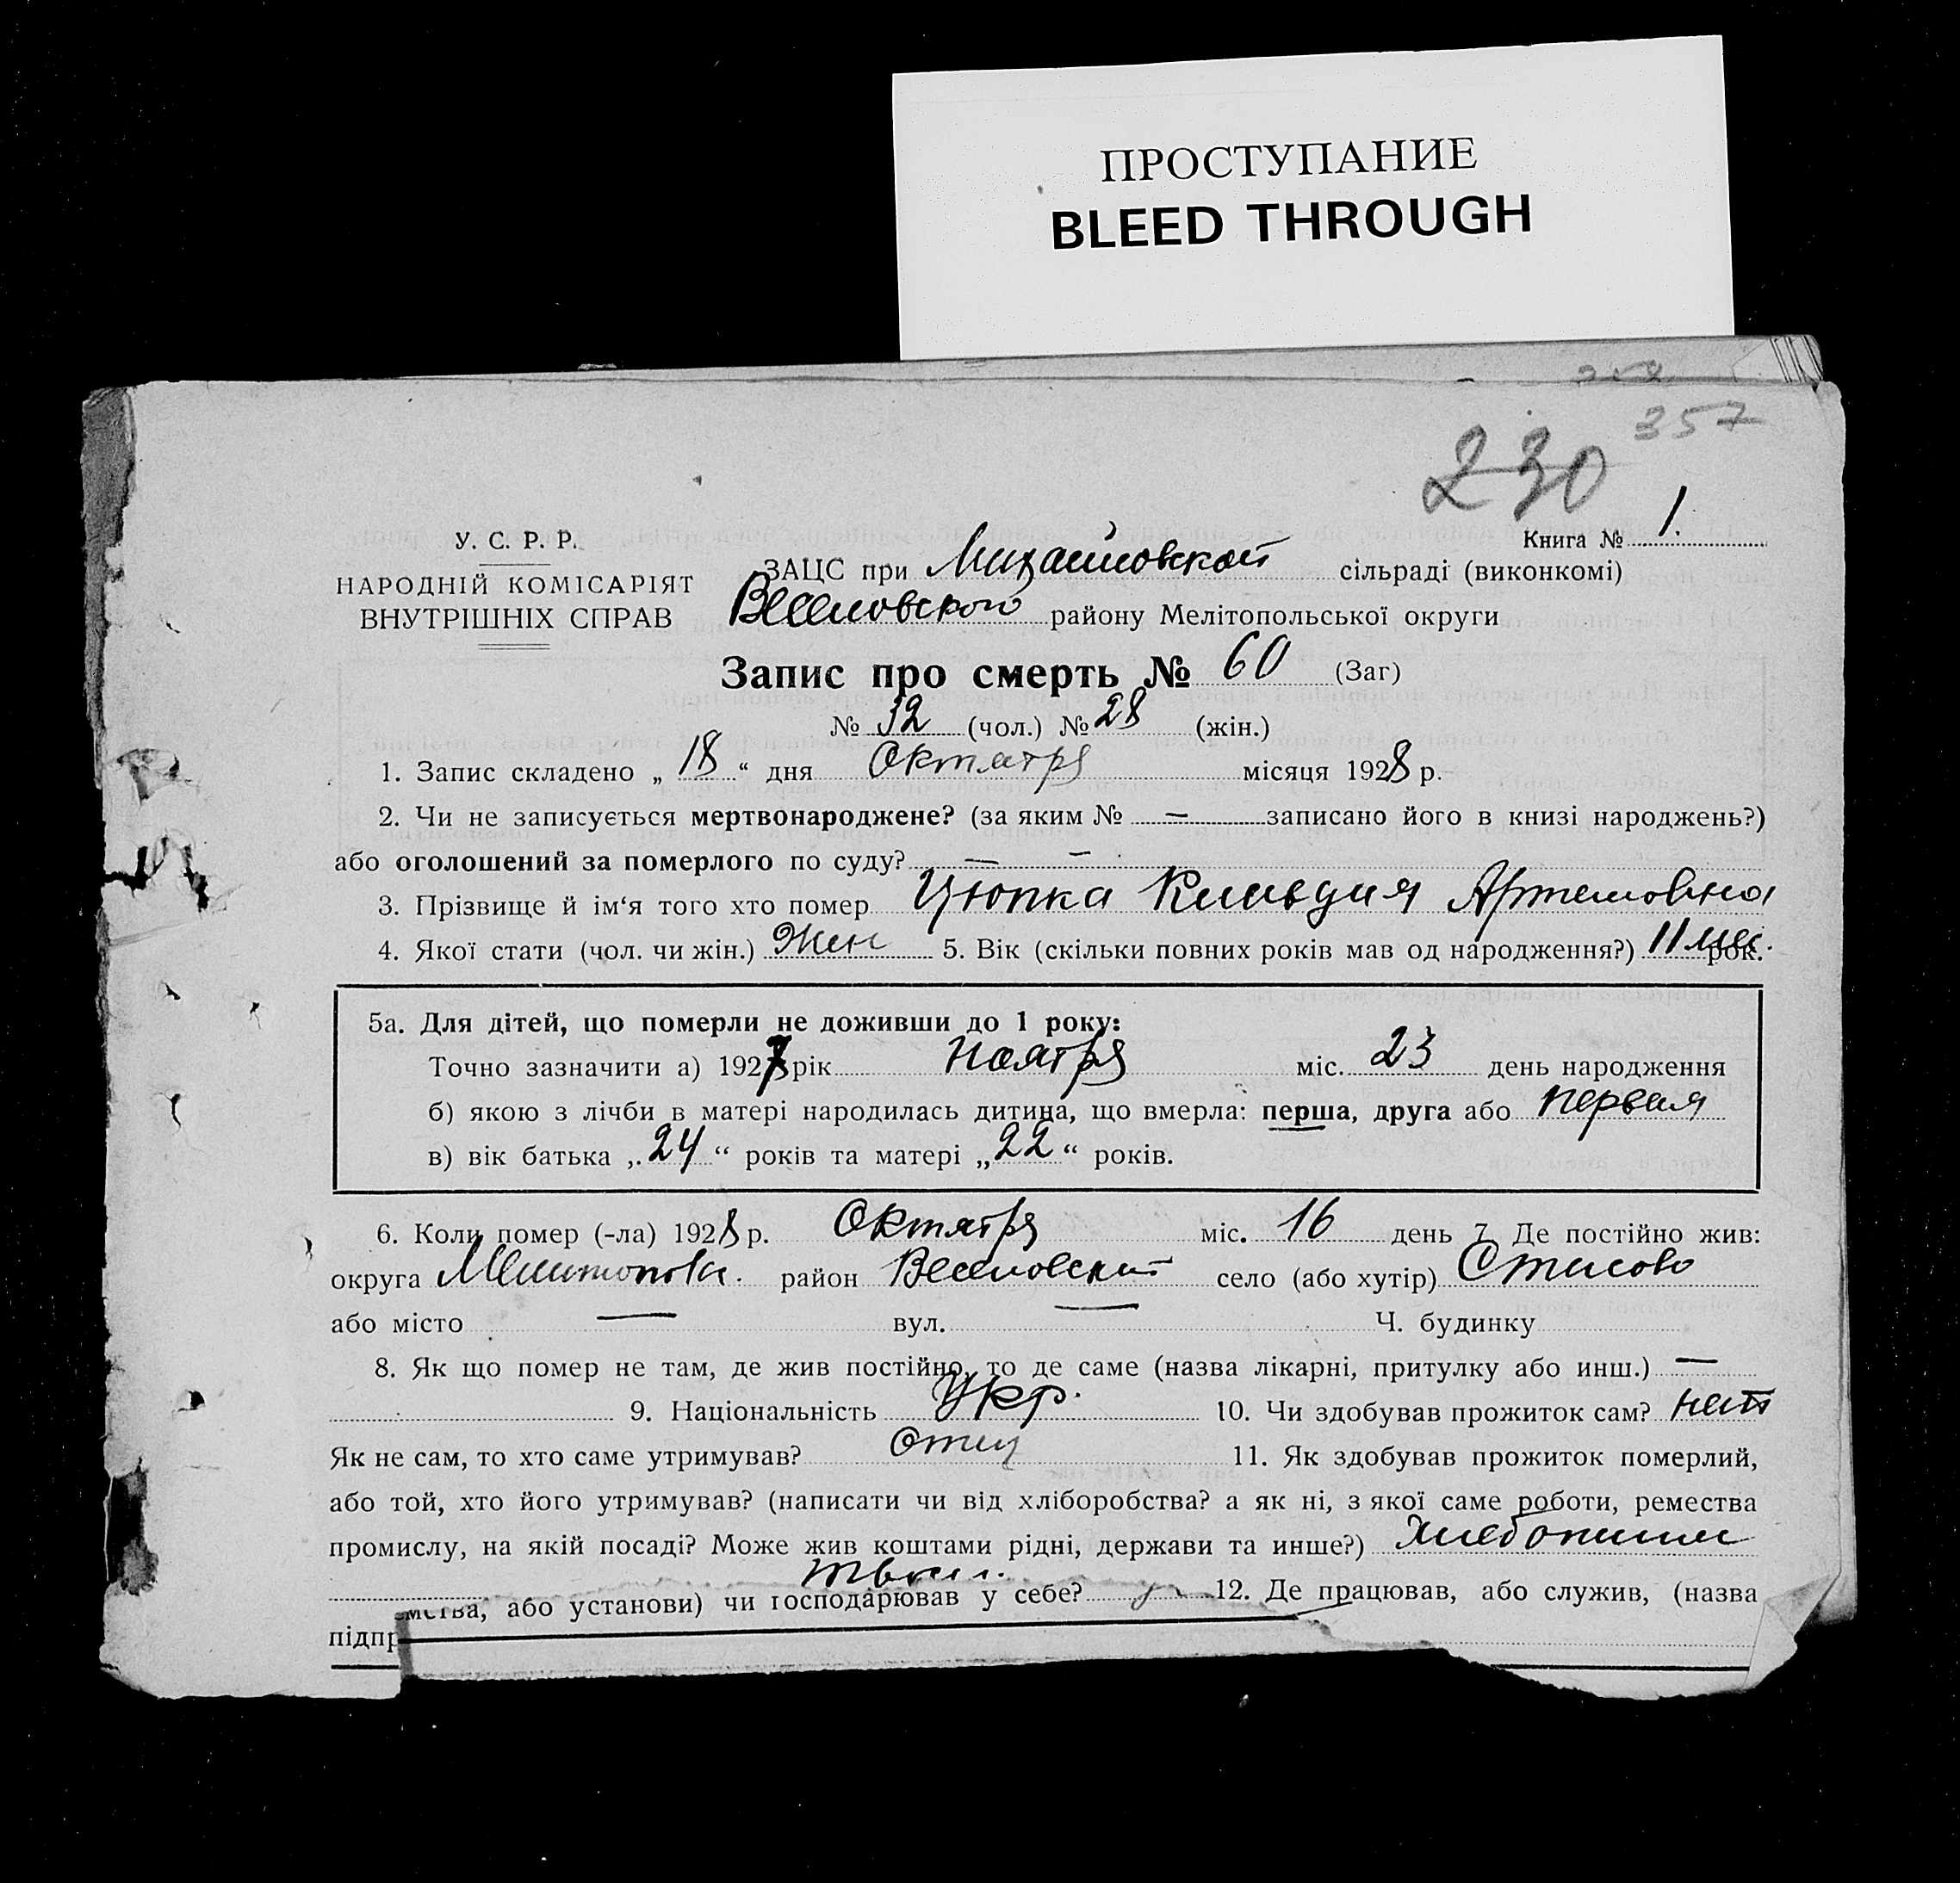 ПРОСТУПАНИЕ
BLEED THROUGH
357
230
У. С. Р. Р.
НАРОДНІЙ КОМІСАРІЯТ
ВНУТРІШНІХ СПРАВ
Книга № 1.
ЗАЦС при Михайловской сільраді (виконкомі)
Веселовского району Мелітопольської округи
Запис про смерть № 60 (Заг)
№ 32 (чол.) № 28 (жін.)
1. Запис складено „ 18 “ дня Октября місяця 1928 р.
2. Чи не записується мертвонароджене? (за яким № — записано його в книзі народжень?)
або оголошений за померлого по суду? — —
3. Прізвище й ім‘я того хто помер Цюпка Клавдия Артемовна
4. Якої стати (чол. чи жін.) Жен 5. Вік (скільки повних років мав од народження?) 11 мес. рок.
5а. Для дітей, що померли не доживши до 1 року:
Точно зазначити а) 1927 рік Ноября міс. 23 день народження
б) якою з лічби в матері народилась дитина, що вмерла: перша, друга або первая
в) вік батька „ 24 “ років та матері „ 22 “ років.
6. Коли помер (-ла) 1928 р. Октября міс. 16 день 7. Де постійно жив:
округа район Веселовский село (або хутір)
або місто — вул. — Ч. будинку
8. Як що помер не там, де жив постійно, то де саме (назва лікарні, притулку або инш.) —
9. Національність Укр. 10. Чи здобував прожиток сам? нет
Як не сам, то хто саме утримував? Отец 11. Як здобував прожиток померлий,
або той, хто його утримував? (написати чи від хліборобства? а як ні, з якої саме роботи, ремества
промислу, на якій посаді? Може жив коштами рідні, держави та инше?) Хлебопаше
ством.
12. Де працював, або служив, (назва
мства, або установи) чи господарював у себе?
підпр